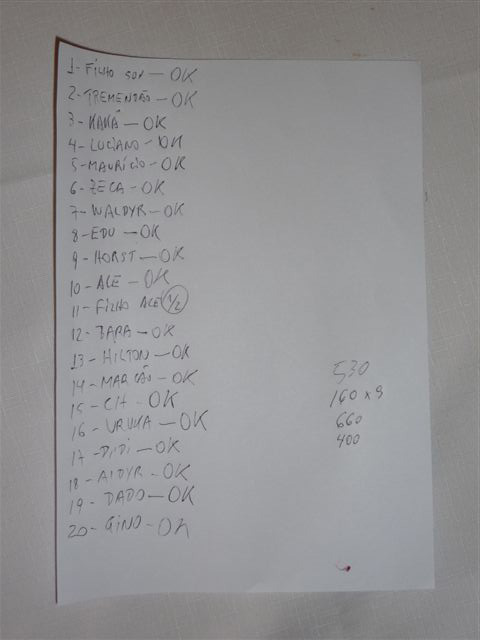 1- FILHO SON - OK
2- TREMENDÃO - OK
3 - KAKÁ - OK
4- LUCIANO - OK
5- MAURÍCIO - OK
6- ZECA - OK
7- WALDYR - OK
8 - EDU - OK
9 - HORST - OK
10 - ACE - OK
11 - FILHO ACE 1/2
12 - BARA - OK
13 - HILTON - OK
14 - MARCÃO - OK
15 - CH - OK
16 - URUKA - OK
17 - DIDI - OK
18 - ALDYR - OK
19 - DADO - OK
20 - GINO - OK
530
160 x 9
660
400